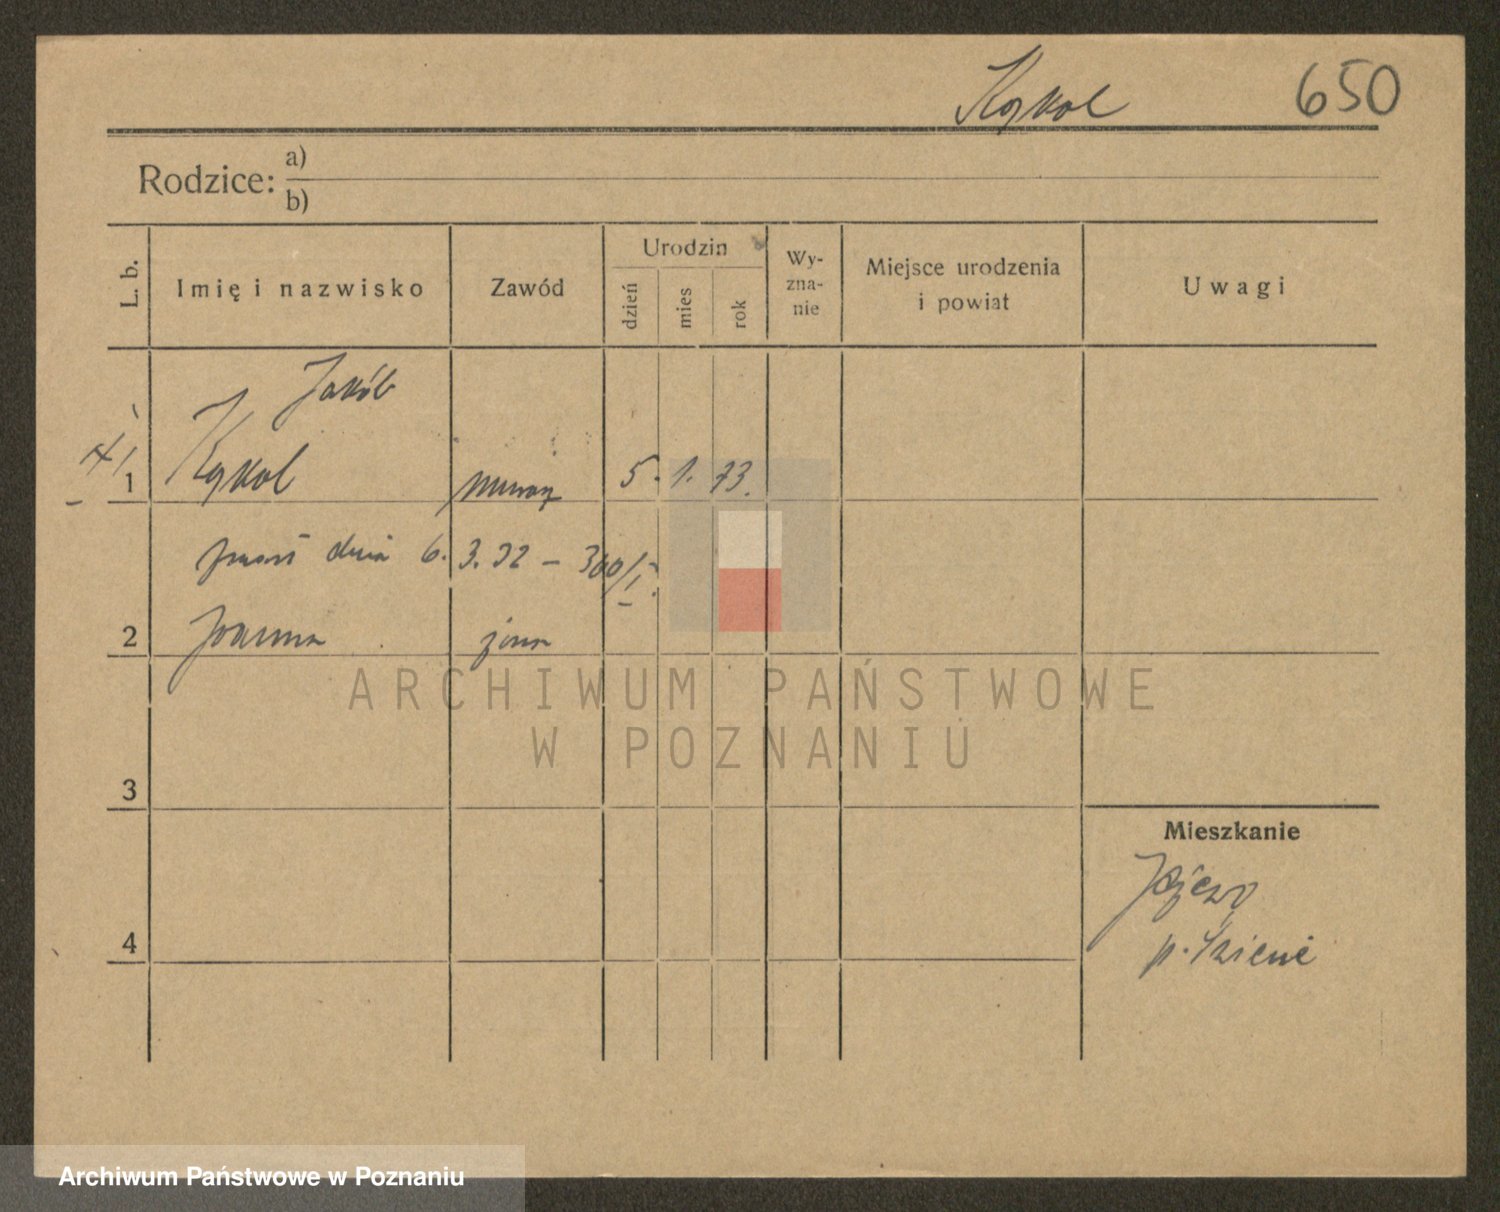 Kąkol 650
Rodzice: a)
b)
L. b. Imię i nazwisko Zawód Urodzin dzień mies rok Wy-zna-nie Miejsce urodzenia i powiat Uwagi
Jakób
1 Kąkol murarz 5. 1. 73.
zmarł dnia 6. 3. 32 – 300/I.
2 Joanna żona
ARCHIWUM PAŃSTWOWE
W POZNANIU
3
Mieszkanie
4
Archiwum Państwowe w Poznaniu